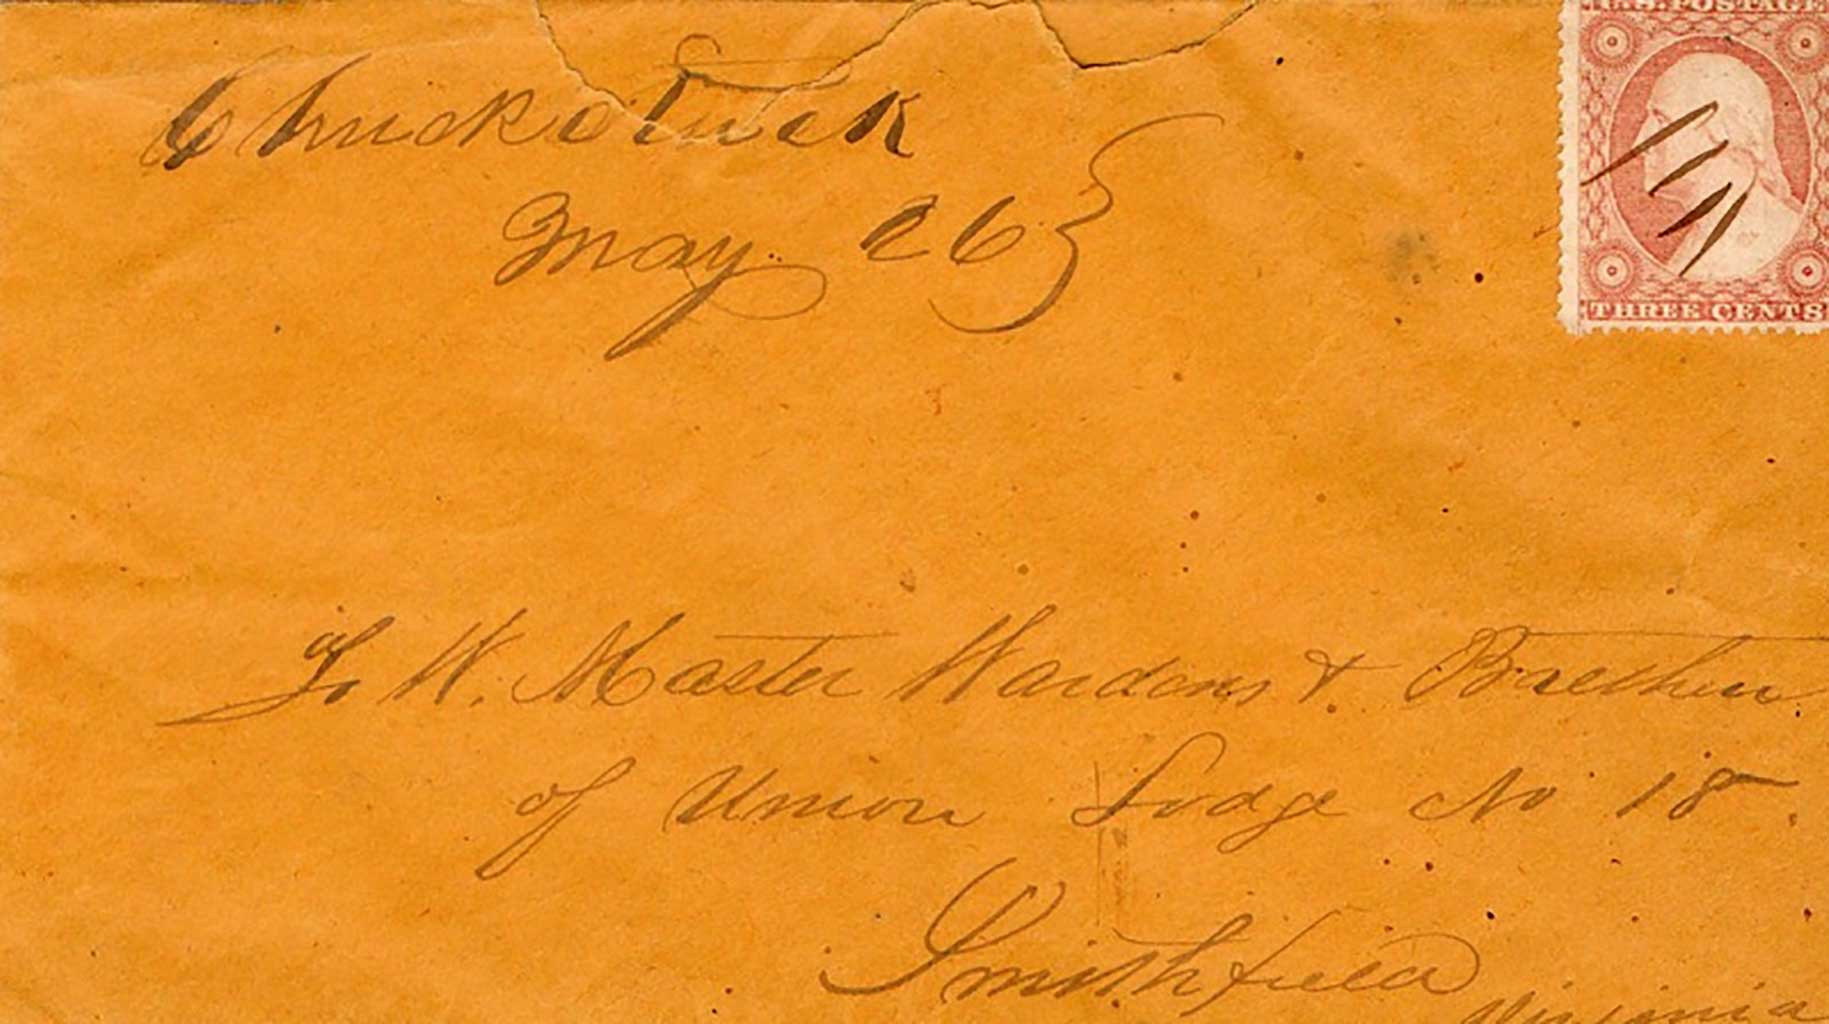 Chuckatuck
May 26
U.S. POSTAGE
THREE CENTS
To W. Master Wardens & Brethren
of Union Lodge No 18.
Smithfield
Virginia